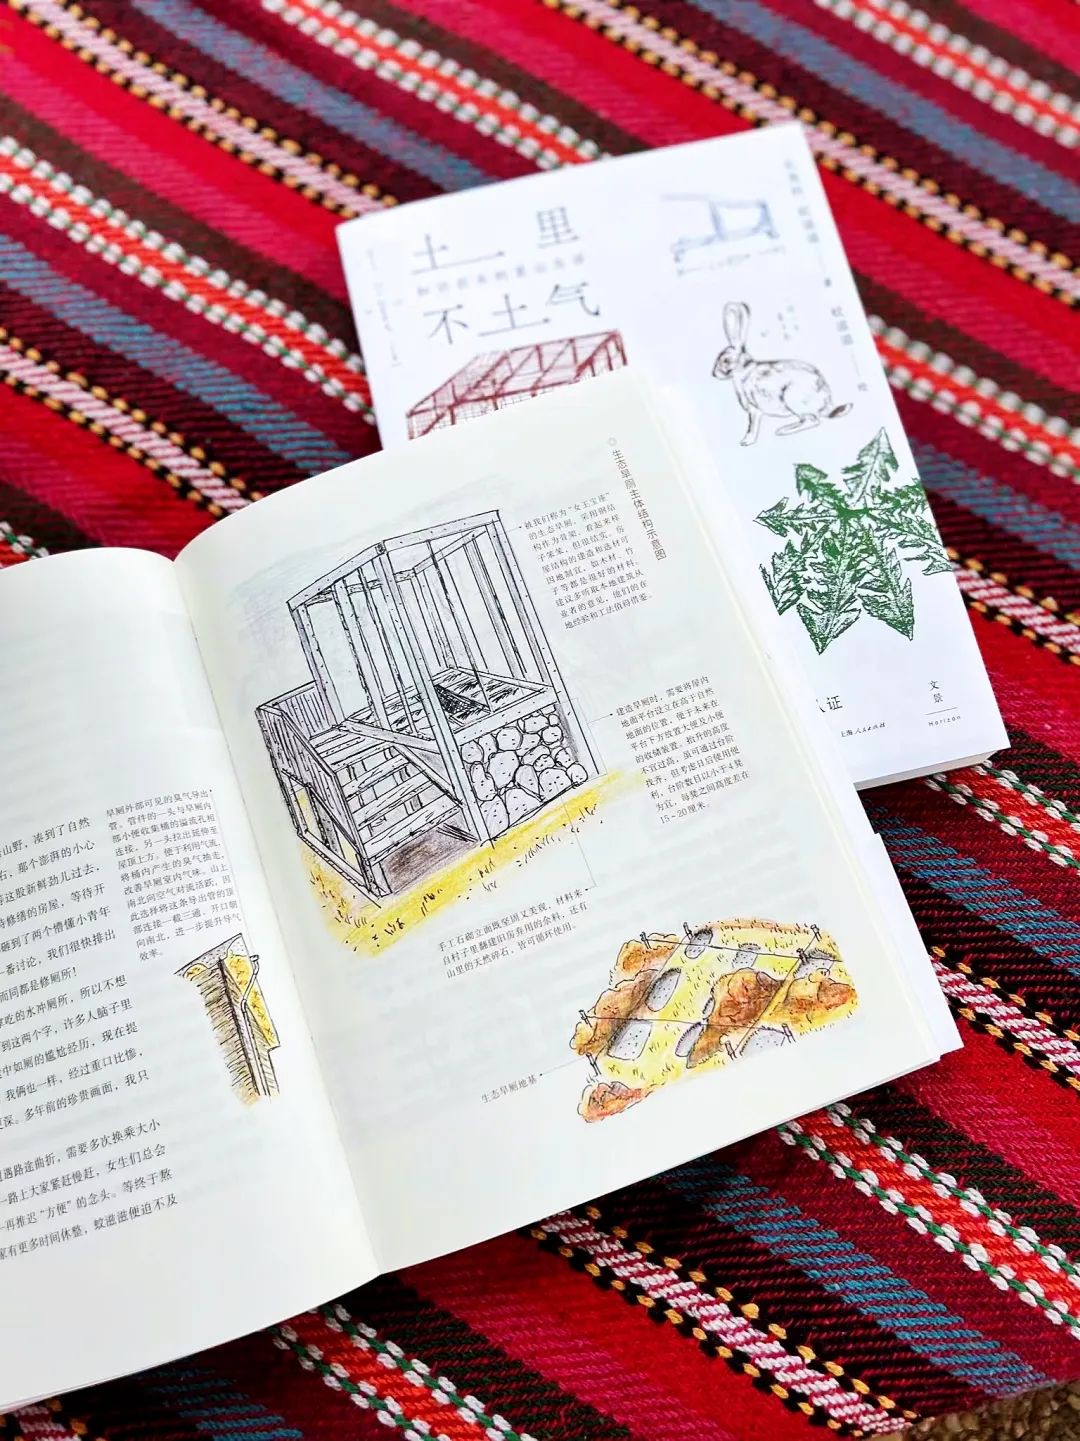 土 里
知识农夫的里山生活
不土气
文景
Horizon
上海人民出版社
生态旱厕主体结构示意图
被我们称为“女王宝座”
的生态旱厕，采用钢结
构作为骨架，看起来样
子笨笨，但很结实。房
屋结构的建造和选材可
因地制宜，如木材、竹
子等都是很好的材料。
建议多听取本地建筑从
业者的意见，他们的在
地经验和工法值得借鉴。
建造旱厕时，需要将屋内
地面平台设立在高于自然
地面的位置，便于未来在
平台下方放置大便及小便
的收储装置。抬升的高度
不宜过高，虽可通过台阶
找齐，但考虑日后使用便
利，台阶数目以小于4凳
为宜，每凳之间高度差在
15~20厘米。
手工石砌立面既坚固又美观，材料来
自村子里翻建旧房弃用的余料，还有
山里的天然碎石，皆可循环使用。
生态旱厕地基
旱厕外部可见的臭气导出
管。管件的一头与旱厕内
部小便收集桶的溢流孔相
连接，另一头拉出延伸至
屋顶上方。便于利用气流，
将桶内产生的臭气抽走，
改善旱厕室内气味。山上
南北向空气对流活跃，因
此选择将这条导出管的顶
部连接一截三通，开口朝
向南北，进一步提升导气
效率。
山野，凑到了自然
石，那个澎湃的小心
等这股新鲜劲儿过去，
待修缮的房屋，等待开
砸到了两个懵懂小青年
番讨论，我们很快排出
而同都是修厕所！
吃的水冲厕所，所以不想
到这两个字，许多人脑子里
中如厕的尴尬经历，现在提
我俩也一样，经过重口比惨，
深。多年前的珍贵画面，我只
遇路途曲折，需要多次换乘大小
一路上大家紧赶慢赶，女生们总会
再推迟“方便”的念头。等终于熬
家有更多时间休整，蚊滋滋便迫不及